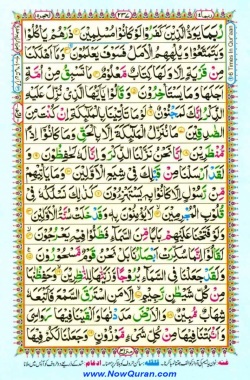 الحجر ١٥ ٢٣٧ ربما ١٤
رُبَمَا يَوَدُّ الَّذِيْنَ كَفَرُوْا لَوْ كَانُوْا مُسْلِمِيْنَ ذَرْهُمْ يَاْكُلُوْا
وَيَتَمَتَّعُوْا وَيُلْهِهِمُ الْاَمَلُ فَسَوْفَ يَعْلَمُوْنَ وَمَآ اَهْلَكْنَا
مِنْ قَرْيَةٍ اِلَّا وَلَهَا كِتَابٌ مَّعْلُوْمٌ مَا تَسْبِقُ مِنْ اُمَّةٍ
اَجَلَهَا وَمَا يَسْتَاْخِرُوْنَ وَقَالُوْا يٰٓاَيُّهَا الَّذِيْ نُزِّلَ عَلَيْهِ
الذِّكْرُ اِنَّكَ لَمَجْنُوْنٌ لَوْ مَا تَاْتِيْنَا بِالْمَلٰٓئِكَةِ اِنْ كُنْتَ مِنَ
الصّٰدِقِيْنَ مَا نُنَزِّلُ الْمَلٰٓئِكَةَ اِلَّا بِالْحَقِّ وَمَا كَانُوْٓا اِذًا
مُّنْظَرِيْنَ اِنَّا نَحْنُ نَزَّلْنَا الذِّكْرَ وَاِنَّا لَهٗ لَحٰفِظُوْنَ
وَلَقَدْ اَرْسَلْنَا مِنْ قَبْلِكَ فِيْ شِيَعِ الْاَوَّلِيْنَ وَمَا يَاْتِيْهِمْ
مِّنْ رَّسُوْلٍ اِلَّا كَانُوْا بِهٖ يَسْتَهْزِءُوْنَ كَذٰلِكَ نَسْلُكُهٗ فِيْ
قُلُوْبِ الْمُجْرِمِيْنَ لَا يُؤْمِنُوْنَ بِهٖ وَقَدْ خَلَتْ سُنَّةُ الْاَوَّلِيْنَ
وَلَوْ فَتَحْنَا عَلَيْهِمْ بَابًا مِّنَ السَّمَآءِ فَظَلُّوْا فِيْهِ يَعْرُجُوْنَ
لَقَالُوْٓا اِنَّمَا سُكِّرَتْ اَبْصَارُنَا بَلْ نَحْنُ قَوْمٌ مَّسْحُوْرُوْنَ
وَلَقَدْ جَعَلْنَا فِي السَّمَآءِ بُرُوْجًا وَّزَيَّنّٰهَا لِلنّٰظِرِيْنَ وَحَفِظْنٰهَا
مِنْ كُلِّ شَيْطٰنٍ رَّجِيْمٍ اِلَّا مَنِ اسْتَرَقَ السَّمْعَ فَاَتْبَعَهٗ
شِهَابٌ مُّبِيْنٌ وَالْاَرْضَ مَدَدْنٰهَا وَاَلْقَيْنَا فِيْهَا رَوَاسِيَ
وَاَنْۢبَتْنَا فِيْهَا مِنْ كُلِّ شَيْءٍ مَّوْزُوْنٍ وَجَعَلْنَا لَكُمْ فِيْهَا
16 Times In Qur'an
www.NowQuran.com